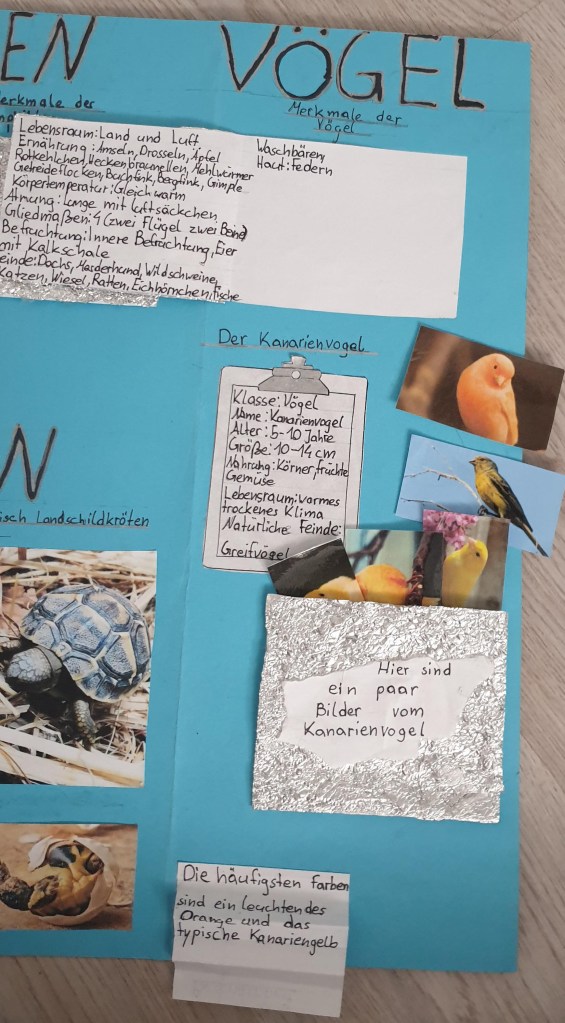 EN
VÖGEL
Merkmale der
Merkmale der
Vögel
Lebensraum: Land und Luft
Ernährung: Amseln, Drosseln, Äpfel
Rotkehlchen, Heckenbraunellen, Mehlwürmer
Getreideflocken, Buchfink, Bergfink, Gimple
Körpertemperatur: Gleichwarm
Atmung: Lunge mit luftsäckchen
Gliedmaßen: 4 (zwei Flügel zwei Beine)
Befruchtung: Innere Befruchtung, Eier
mit Kalkschale
einde: Dachs, Marderhund, Wildschweine,
Katzen, Wiesel, Ratten, Eichhörnchen, Fische
Waschbären
Haut: Federn
Der Kanarienvogel
Klasse: Vögel
Name: Kanarienvogel
Alter: 5-10 Jahre
Größe: 10-14 cm
Nahrung: Körner, früchte
Gemüse
Lebensraum: warmes
trockenes Klima
Natürliche Feinde:
Greifvögel
N
isch Landschildkröten
Hier sind
ein paar
Bilder vom
Kanarienvogel
Die häufigsten Farben
sind ein leuchtendes
Orange und das
typische Kanariengelb